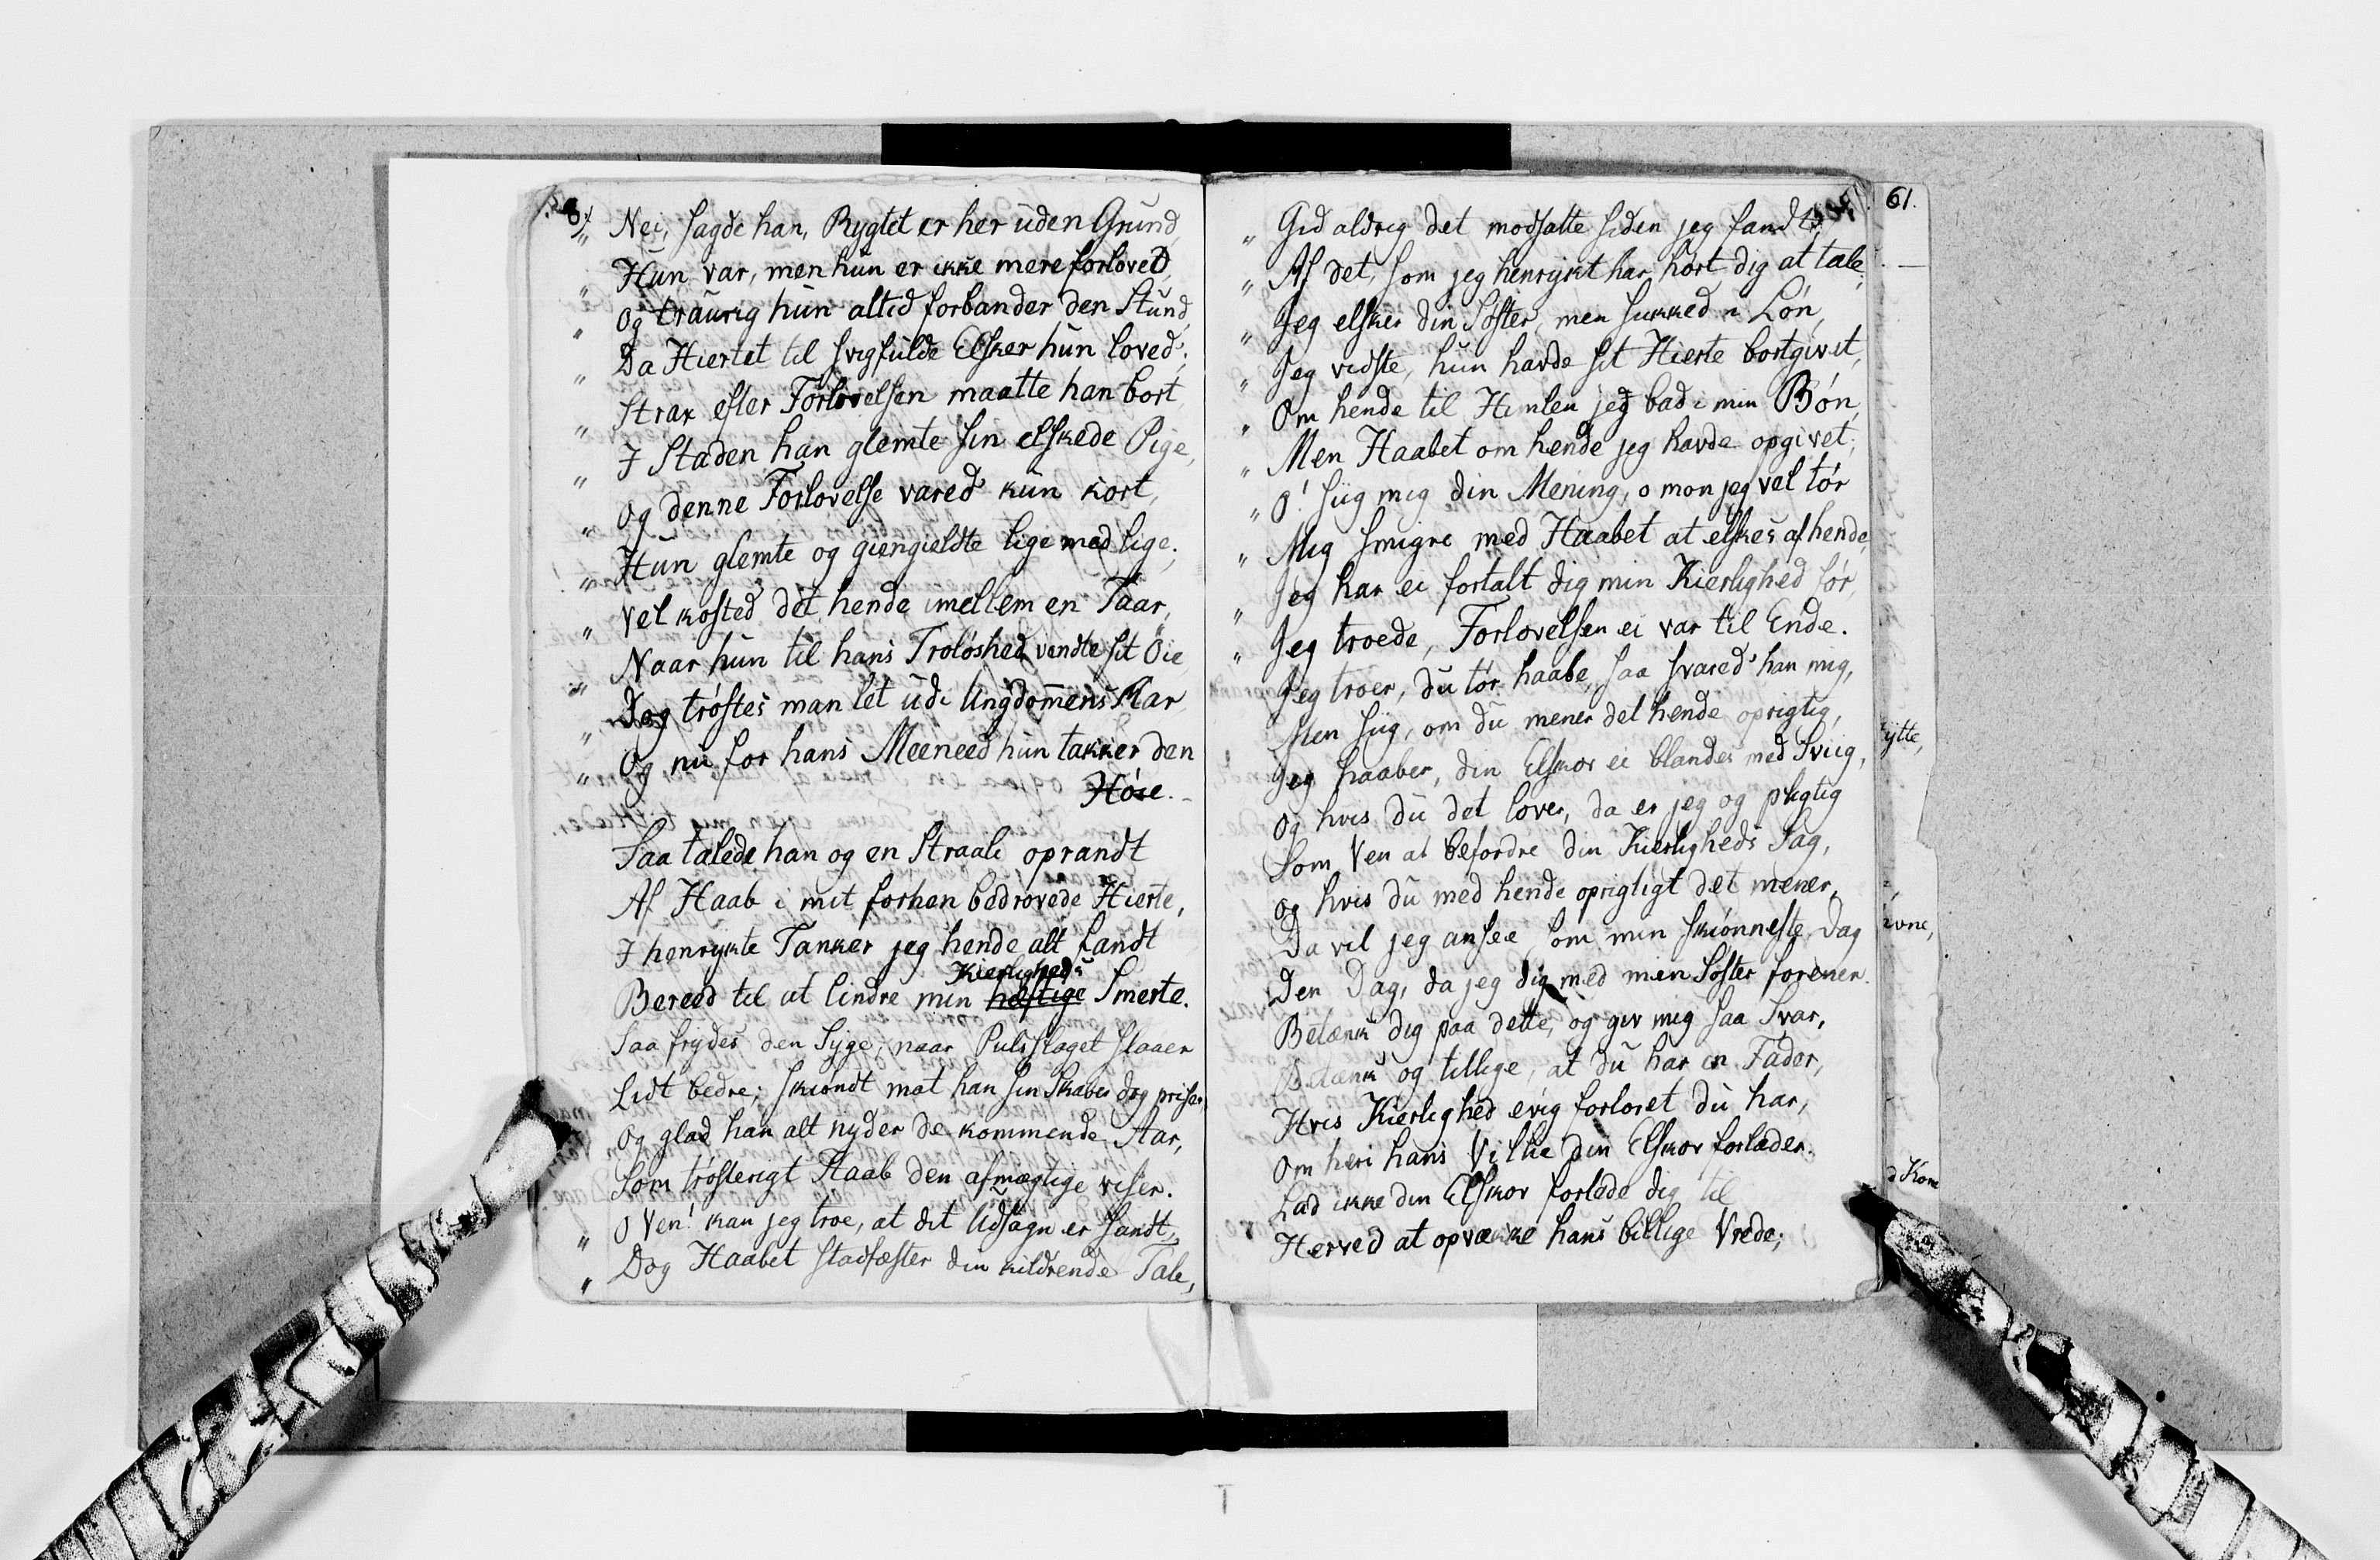 „ Nei, sagde han, Rygtet er her uden Grund,
„ Hun var, men hun er ikke mere forlovet,
„ Og traurig hun altid forbander den Stund,
„ Da Hiertet til svigfulde Elsker hun loved';
„ Strax efter Forlovelsen maatte han bort,
„ I Staden han glemte sin elskede Pige,
„ Og denne Forlovelse vared' kun kort,
„ Hun glemte og giengieldte lige med lige;
„ Vel kosted det hende imellem en Taar,
„ Naar hun til hans Troløshed vendte sit Øie
„ Dog trøstes man let udi Ungdom̅ens Aar
„ Og nu for hans Meeneed hun takker den
Høie.
Saa talede han og en Straale oprandt
Af Haab i mit forhen bedrøvede Hierte,
I henrykte Tanker jeg hende alt fandt
Kierligheds
Bereed til at lindre min heftige Smerte.
Saa frydes den Syge, naar Pulsslaget slaaer
Lidt bedre; skiøndt mat han sin Skaber dog priser
Og glad han alt nyder de kommende Aar,
Som trøsterigt Haab den afmægtige viser.
„ O Ven! kan jeg troe, at dit Udsagn er sandt,
„ Dog Haabet stadfæster din kildrende Tale,
„ Gid aldrig det modsatte siden jeg fandt
„ Af det, som jeg henrykt har hørt dig at tale;
„ Jeg elsker din Søster, men sukked i Løn,
„ Jeg vidste, hun havde sit Hierte bortgivet,
„ Om hende til Himlen jeg bad i min Bøn,
„ Men Haabet om hende jeg havde opgivet;
„ O! siig mig din Mening, o mon jeg vel tør
„ Mig smigre med Haabet at elskes af hende,
„ Jeg har ei fortalt dig min Kierlighed før,
„ Jeg troede, Forlovelsen ei var til Ende.
Jeg troer, du tør haabe, saa svared' han mig,
Men siig, om du mener det hende oprigtig,
Jeg haaber, din Elskov ei blandes med Sviig,
Og hvis du det lover, da er jeg og pligtig
Som Ven at befordre din Kierligheds Sag,
Og hvis du med hende oprigtigt det mener,
Da vil jeg ansee som min skiønneste Dag
Den Dag, da jeg dig med min Søster forener.
Betænk dig paa dette, og giv mig saa Svar,
Betænk og tillige, at du har en Fader,
Hvis Kierlighed evig forloret du har,
Om heri hans Villie din Elskov forlader.
Lad ikke din Elskov forlede dig til
Herved at opvække hans billige Vrede;
61.
ytte,
ivne,
d Kone